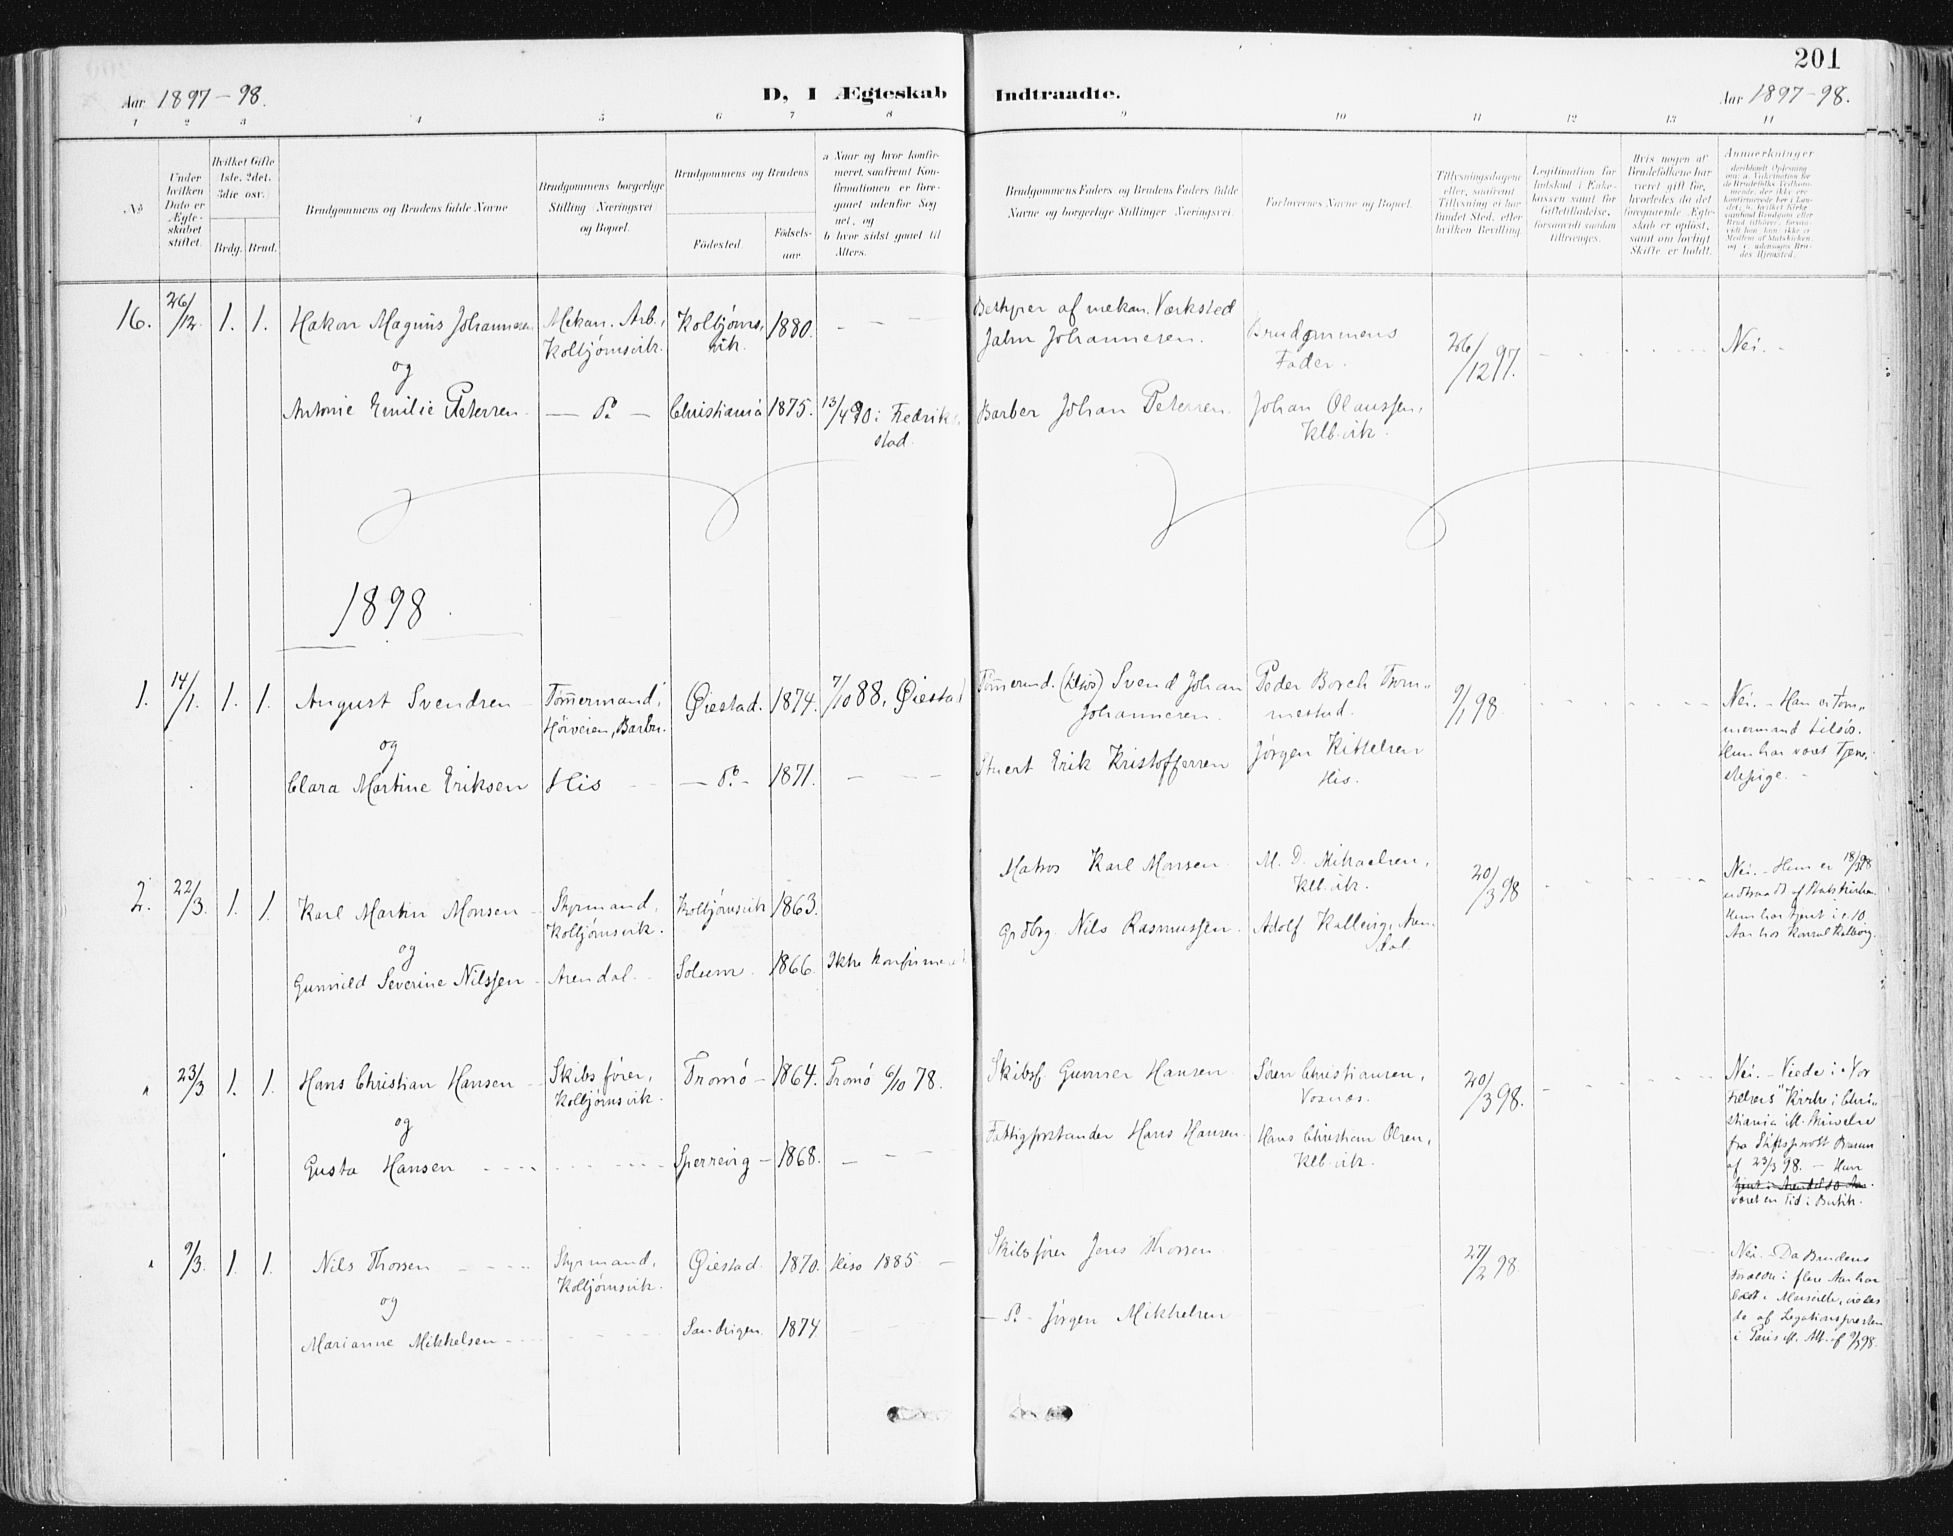 201
Aar 1897-98.
D, I Ægteskab Indtraadte.
Aar 1897-98.
1 2 3 4 5 6 7 8 9 10 11 12 13 14
No
Under hvilken Dato er Ægteskabet stiftet.
Hvilket Gifte 1ste, 2det, 3die osv.
Brdg. Brud.
Brudgommens og Brudens fulde Navne
Brudgommens borgerlige Stilling Næringsvei og Bopæl.
Brudgommens og Brudens
Fødested.
Fødselsaar
a Naar og hvor konfirmeret, saafremt Konfirmationen er foregaaet udenfor Sognet, og
b hvor sidst gaaet til Alters.
Brudgommens Faders og Brudens Faders fulde Navne og borgerlige Stillinger Næringsvei.
Forlovernes Navne og Bopæl.
Tillysningsdagene eller, saafremt Tillysning ei har fundet Sted, efter hvilken Bevilling.
Legitimation for Indskud i Enkekassen samt for Giftetilladelse, forsaavidt saadan tiltrænges.
Hvis nogen af Brudefolkene har været gift før, hvorledes da det foregaaende Ægteskab er opløst, samt om lovligt Skifte er holdt.
Anmærkninger
16. 26/12. 1. 1. Hakon Magnus Johannesen
Mekan. Arb., Kolbjørnsvik.
Kolbjørnsvik. 1880. - - -
Bestyrer af mekan. Værksted
Jahn Johannesen.
Brudgommens Fader.
26/12 97.
Nei. -
og
Antonie Emilie Petersen. - Do - Christiania 1875. 13/4 90 i Fredrikstad.
Barber Johan Petersen. Johan Olaussen, Klb.vik.
1898.
1. 14/1. 1. 1. August Svendsen
Tømmermand, Hörveien, Barbu.
Øiestad. 1874. 7/10 88, Øiestad
Tømmermd. Svend Johan Johannesen.
Peder Borch Trommestad.
9/1 98.
Nei. - Han er Tømmermand tilsös. Hun har været Tjenestepige. -
og
Clara Martine Eriksen His - Do - 1871. - - -
Stuert Erik Kristoffersen Jørgen Kittelsen His.
2. 22/3. 1. 1. Karl Martin Monsen
Styrmand, Kolbjørnsvik.
Kolbjørnsvik 1863.
Matros Karl Monsen. M. D. Mikaelsen, Klb.vik.
20/3 98
Nei. - Hun er 18/3 98 udtraadt af Statskirken. Hun har tjent i c. 10 Aar hos Konsul Kallevig.
og
Gunnild Severine Nilssen - Arendal. Solum. 1866. Ikke konfirmeret
Grdbrg. Nils Rasmussen. Adolf Kallevig, Arendal.
" 23/3 1. 1. Hans Christian Hansen
Skibsfører, Kolbjørnsvik.
Tromø - 1864. Tromø 6/10 78.
Skibsf. Gunner Hansen. Søren Christiansen, Vosnæs.
20/3 98.
Nei. - Viede i "Vor Frelsers" Kirke i Christiania if. Skrivelse fra Stiftsprovst af 23/3 98. - Hun tjent i Arendal 10 Aar. været en Tid i Butik.
og
Gusta Hansen Sperrevig - 1868. - - -
Fattigforstander Hans Hansen. Hans Christian Olsen, Klb.vik.
" 9/3. 1. 1. Nils Thorsen
Styrmand, Kolbjørnsvik.
Øiestad. 1870. Hisø 1885. -
Skibsfører Jens Thorsen
27/2 98
Nei. - Da Brudens Forældre i flere Aar har boet i Marseille, viedes de af Legationspresten i Paris if. Att. af 9/3 98.
og
Marianne Mikkelsen Sandvigen. 1874
- Do - Jørgen Mikkelsen